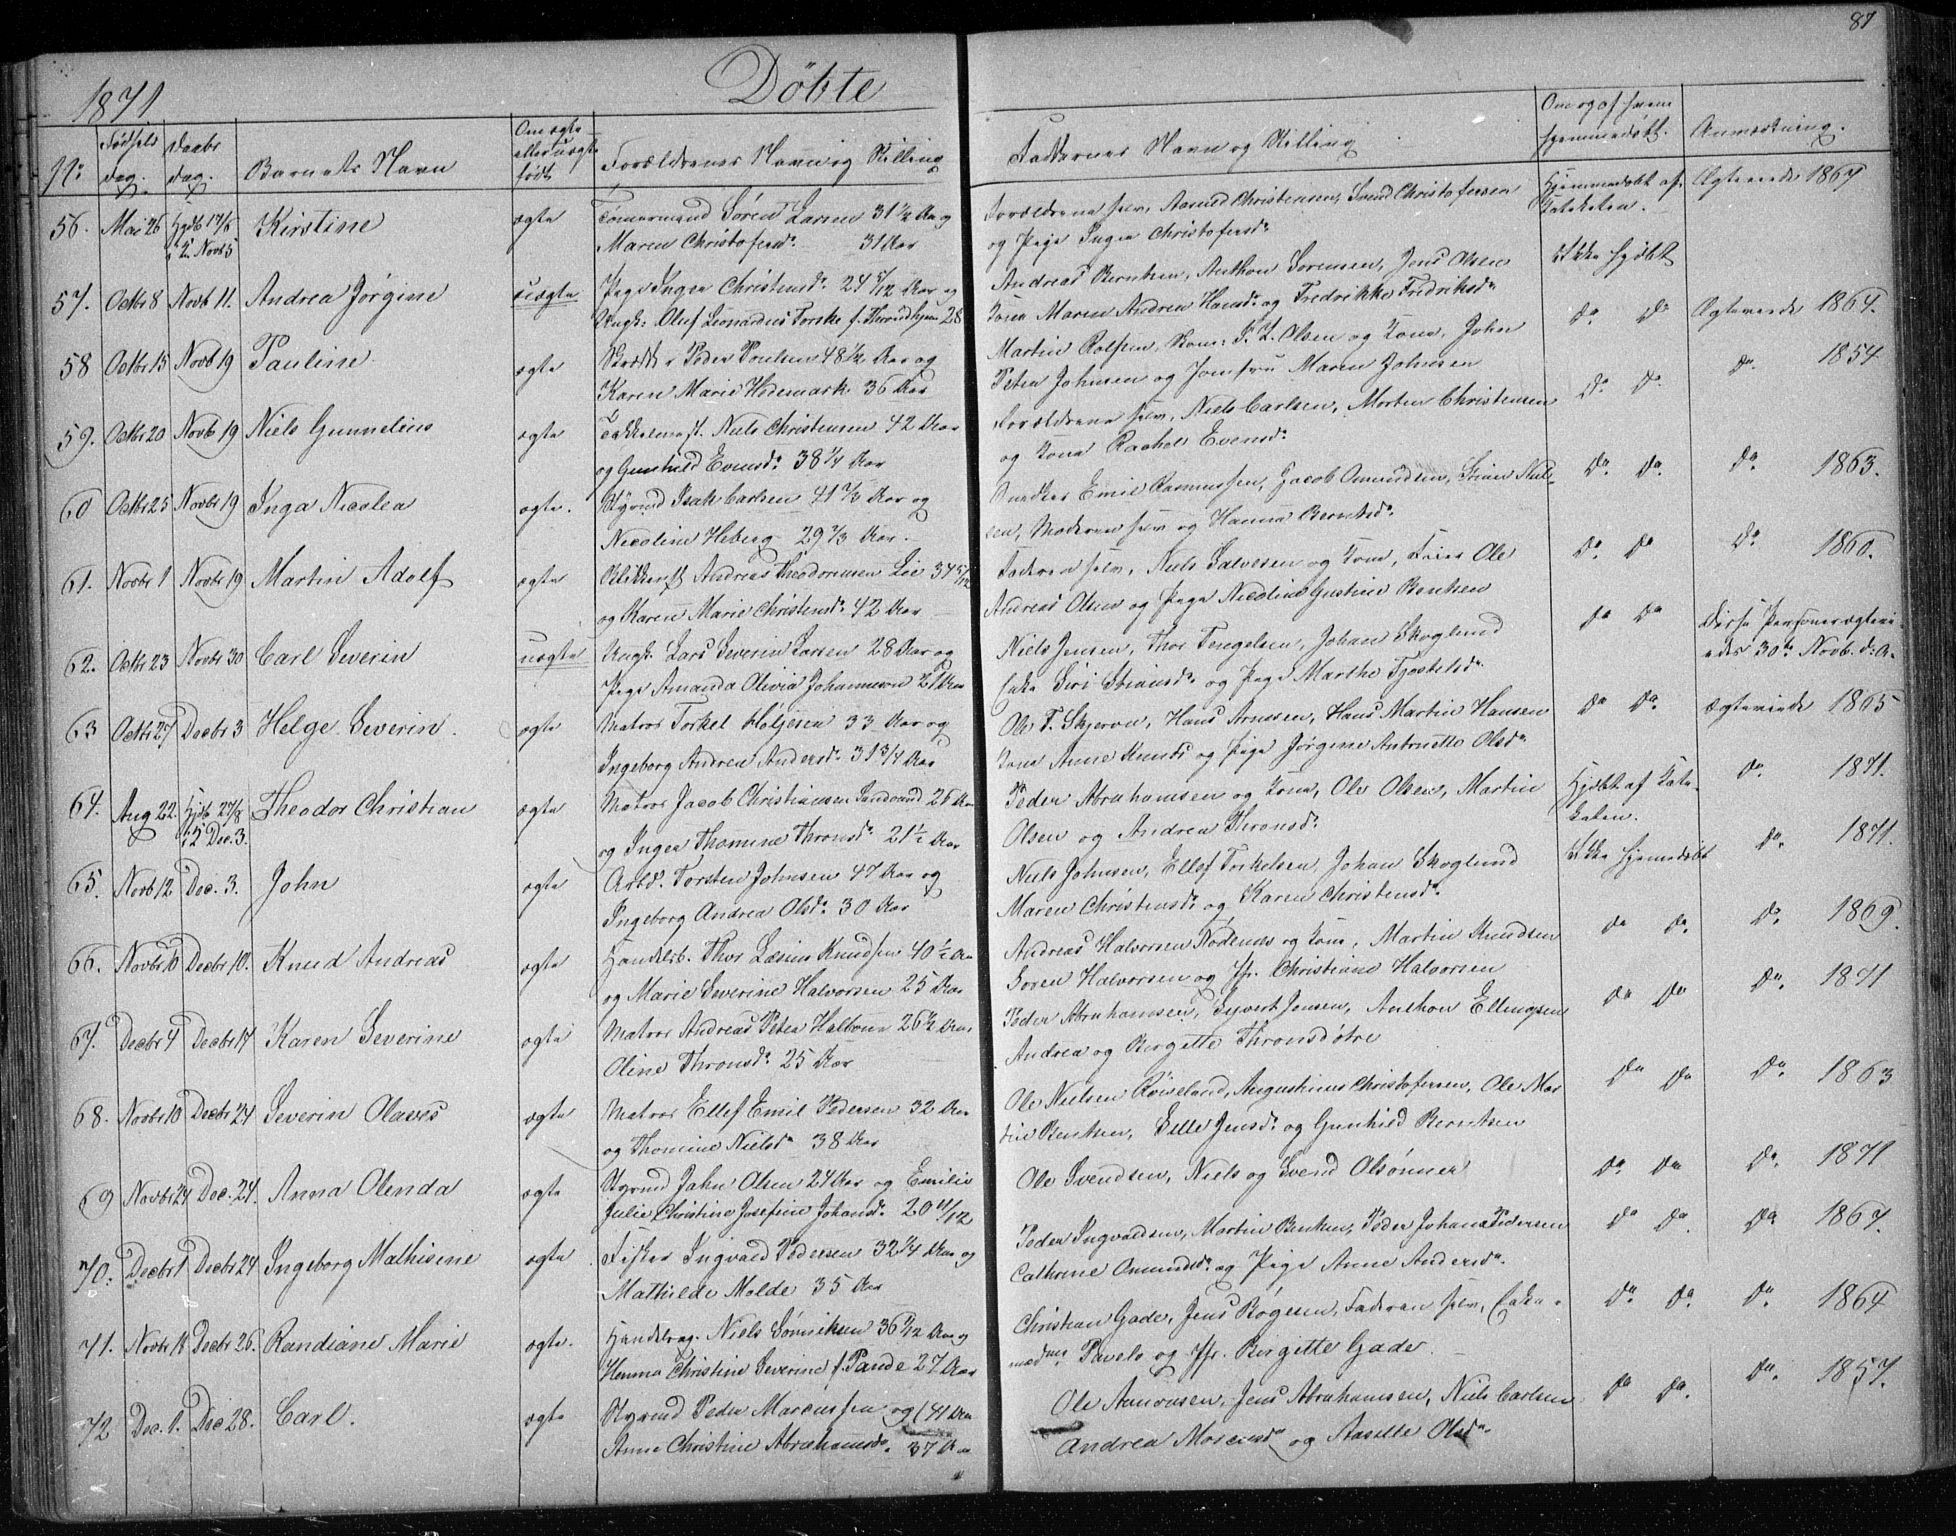 87
1871.
Døbte
No
Fødsels
dag.
Daabs
dag.
Barnets Navn
Om ægte
eller uægte
født
Forældrenes Navn og Stilling
Faddernes Navn og Stilling
hjemmedøbt.
Anmærkning.
56. Mai 26 Hjdb 17/6 Kirstine ægte Tømmermand Søren Larsen 31 1/2 Aar og
i K. Novb 5 Maren Christofersdr. 31 Aar
Forældrene selv, Aanud Christensen, Svend Christofersen
og Pige Inger Christofersdr.
Hjemmedøbt af
Kateketen.
Ægteviede 1867
57. Octbr 8 Novb 11. Andrea Jørgine uægte Pige Inger Christensdr. 24 5/12 Aar og
Ungk. Oluf Leonardus Torske f. Throndhjem 28
Andreas Berntsen, Anthon Sørensen, Jens Olsen
Kone Maren Andrea Hansdr. og Fredrikke Fredriksdr.
Ikke hjdbt
58 Octbr 15 Novb 19 Pauline ægte Peder Poulsen 48 1/2 Aar og
Karen Marie Hedemark 36 Aar
Martin Rolfsen, Olsen og Kone, John
Peter Johnsen og Jomfru Maren Johnsen
Do Do Ægteviede 1864.
59. Octbr 20 Novb 19 Niels Gunnelius ægte Takkelmest. Niels Christensen 42 Aar
og Gunhild Evensdr. 38 1/4 Aar
Forældrene selv, Niels Carlsen, Morten Christensen
og Kone Rachel Evensdr.
Do Do Do 1854
60 Octbr 25 Novbr 19 Inga Nicolea ægte. Styrmd Isak Carlsen 41 2/3 Aar og
Nicoline Heberg 29 2/3 Aar.
Snedker Emil Rasmussen, Jacob Omundsen, Niel-
sen, Moderen selv og Hanna Berntsdr.
Do Do Do 1863.
61. Novbr 1 Novbr 19 Martin Adolf ægte Blikkensl. Andreas Theodorsen Lie 34 5/12
og Karen Marie Christensdr. 42 Aar
Faderen selv, Niels Salvesen og Kone, Ole
Andreas Olsen og Pige Nicoline Gustine Berntsen
Do Do Do 1860.
62. Octbr 23 Novbr 30 Carl Severin uægte Ungk. Lars Severin Larsen 28 Aar og
Pige Amanda Olivia Johannesen 21 Aar
Niels Jensen, Thor Tengelsen, Johan Skoglund
Enke Siri og Pige Marthe Tjostelsdr.
Do Do Disse Personer ægtevi-
edes 30te Novb. d. A.
63 Octbr 27 Decbr 3 Helge Severin. ægte Matros Torkel Helgesen 33 Aar og
Ingeborg Andrea Andersdr. 31 3/4 Aar
Ole T. Skjeron, Hans Arnesen, Hans Martin Hansen
Kone Anne Knudsd. og Pige Jørgine Antonette Olsdr.
Do Do Ægteviede 1865
64. Aug 22. Hjdb 27/8 Theodor Christian ægte Matros Jacob Christiansen Sandsund 26 Aar
i K. Dec. 3. og Inger Thomine Thronsdr. 21 1/2 Aar
Peder Abrahamsen og Kone, Ole Olsen, Martin
Olsen og Andrea Thronsdr.
Hjdbt af Kate-
keten.
Do 1871.
65. Novb 12 Dec. 3. John ægte Arbd. Torsten Johnsen 47 Aar og
Ingeborg Andrea Olsdr. 30 Aar
Niels Johnsen, Ellef Torkelsen, Johan Skoglund
Maren Christensdr. og Karen Christensdr.
Ikke hjemmedøbt Do 1871.
66. Novbr 10 Decbr 10. Knud Andreas ægte Handelsb. Thor Læsius Knudsen 40 1/2 Aar
og Marie Severine Halvorsen 25 Aar
Andreas Halvorsen Nødenes og Kone, Martin Knudsen
Søren Halvorsen og Jfr. Christiane Halvorsen
Do Do Do 1869.
67. Decbr 4 Decbr 17 Karen Severine ægte Matros Andreas Peter Halvorsen 26 1/2 Aar
Oline Thronsdr. 25 Aar
Peder Abrahamsen, Syvert Jensen, Anthon Ellingsen
Andrea og Birgitte Thronsdøtre
Do Do Do 1871
68. Novbr 10 Decbr 24 Severin Olaves ægte Matros Ellef Emil Pedersen 32 Aar
og Thomine Nielsdr 38 Aar
Ole Nielsen Røiseland, Augustinus Christofersen, Ole Mar-
tin Bentsen, Elle Jensdr. og Gunhild Berntsen
Do Do Do 1863
69 Novbr 24 Dec. 24. Anna Olenda ægte Styrmd Jahn Olsen 24 Aar og Emilie
Julie Christine Josefine Johansdr. 20 11/12
Ole Svendsen, Niels og Svend Olsønner
Do Do Do 1871
70. Decbr 1 Decbr 24 Ingeborg Mathisine ægte Fisker Ingvald Pedersen 32 1/4 Aar og
Mathilde Molde 35 Aar
Peder Ingvaldsen, Martin Bentsen, Peder Johan Pedersen
Cathrine Omundsdr. og Pige Anne Andersdr.
Do Do Do 1867.
71. Novbr 18 Decbr 26. Randiane Marie ægte. Handelsag. Niels Sønniksen 36 7/12 Aar og
Hemma Christine Severine f. Pande 27 Aar
Christian Gade, Jens Bøgesen, Faderen selv,
Pavels og Jfr. Birgitte Gade.
Do Do Do 1864
72 Dec. 1. Dec 28. Carl. ægte Styrmd Peder Marcussen og (41 Aar
Anne Christine Abrahamsdr. 37 Aar
Ole Aanonsen, Jens Abrahamsen, Niels Carlsen
Andrea Marcusdr og Aaselle Olsdr.
Do Do Do 1857.